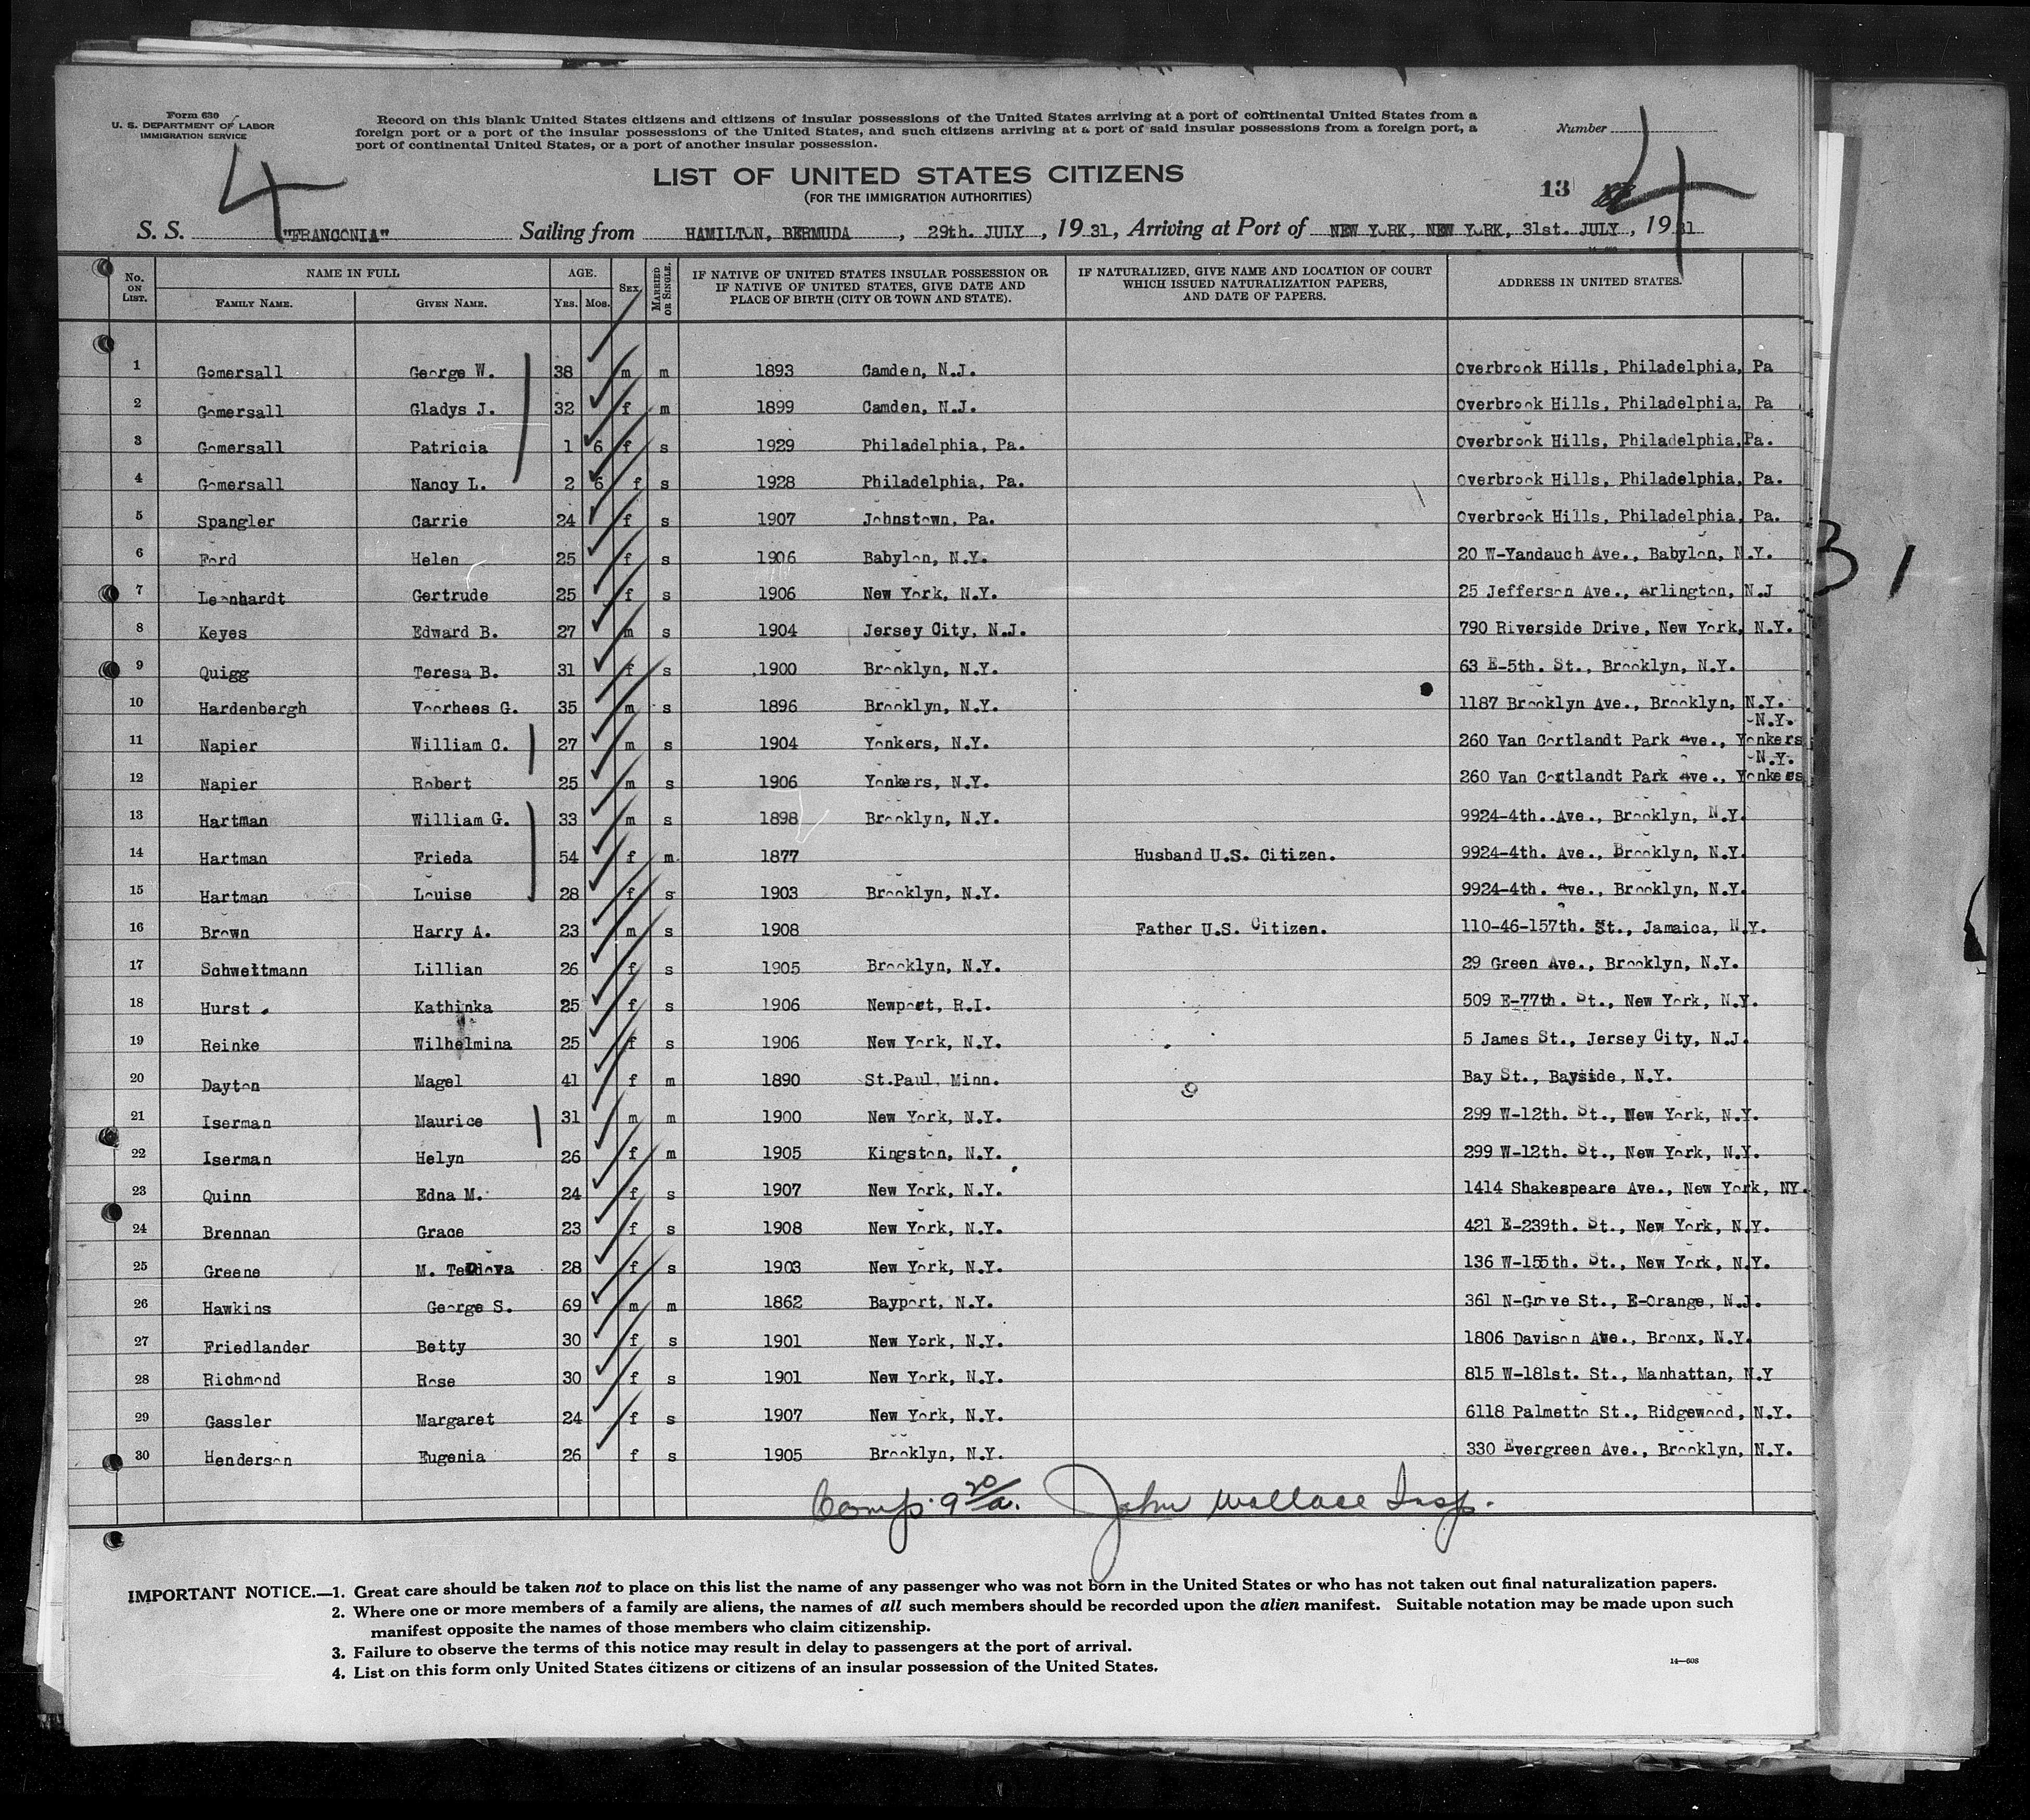 Form 630
U. S. DEPARTMENT OF LABOR
IMMIGRATION SERVICE
Record on this blank United States citizens and citizens of insular possessions of the United States arriving at a port of continental United States from a
foreign port or a port of the insular possessions of the United States, and such citizens arriving at a port of said insular possessions from a foreign port, a
port of continental United States, or a port of another insular possession.
Number
4
4
LIST OF UNITED STATES CITIZENS
(FOR THE IMMIGRATION AUTHORITIES)
13
S. S. "FRANCONIA" Sailing from HAMILTON, BERMUDA, 29th. JULY, 1931, Arriving at Port of NEW YORK, NEW YORK, 31st. JULY, 1931
No. ON LIST. NAME IN FULL FAMILY NAME. GIVEN NAME. AGE. YRS. MOS. SEX MARRIED OR SINGLE. IF NATIVE OF UNITED STATES INSULAR POSSESSION OR IF NATIVE OF UNITED STATES, GIVE DATE AND PLACE OF BIRTH (CITY OR TOWN AND STATE). IF NATURALIZED, GIVE NAME AND LOCATION OF COURT WHICH ISSUED NATURALIZATION PAPERS, AND DATE OF PAPERS. ADDRESS IN UNITED STATES.
1 Gomersall George W. 38 m m 1893 Camden, N.J. Overbrook Hills, Philadelphia, Pa
2 Gomersall Gladys J. 32 f m 1899 Camden, N.J. Overbrook Hills, Philadelphia, Pa
3 Gomersall Patricia 1 6 f s 1929 Philadelphia, Pa. Overbrook Hills, Philadelphia, Pa.
4 Gomersall Nancy L. 2 6 f s 1928 Philadelphia, Pa. Overbrook Hills, Philadelphia, Pa.
5 Spangler Carrie 24 f s 1907 Johnstown, Pa. Overbrook Hills, Philadelphia, Pa.
6 Ford Helen 25 f s 1906 Babylon, N.Y. 20 W-Yandauch Ave., Babylon, N.Y.
7 Leonhardt Gertrude 25 f s 1906 New York, N.Y. 25 Jefferson Ave., Arlington, N.J
8 Keyes Edward B. 27 m s 1904 Jersey City, N.J. 790 Riverside Drive, New York, N.Y.
9 Quigg Teresa B. 31 f s 1900 Brooklyn, N.Y. 63 E-5th. St., Brooklyn, N.Y.
10 Hardenbergh Voorhees G. 35 m s 1896 Brooklyn, N.Y. 1187 Brooklyn Ave., Brooklyn, N.Y.
11 Napier William C. 27 m s 1904 Yonkers, N.Y. 260 Van Cortlandt Park Ave., Yonkers N.Y.
12 Napier Robert 25 m s 1906 Yonkers, N.Y. 260 Van Cortlandt Park Ave., Yonkers N.Y.
13 Hartman William G. 33 m s 1898 Brooklyn, N.Y. 9924-4th. Ave., Brooklyn, N.Y.
14 Hartman Frieda 54 f m 1877 Husband U.S. Citizen. 9924-4th. Ave., Brooklyn, N.Y.
15 Hartman Louise 28 f s 1903 Brooklyn, N.Y. 9924-4th. Ave., Brooklyn, N.Y.
16 Brown Harry A. 23 m s 1908 Father U.S. Citizen. 110-46-157th. St., Jamaica, N.Y.
17 Schwettmann Lillian 26 f s 1905 Brooklyn, N.Y. 29 Green Ave., Brooklyn, N.Y.
18 Hurst Kathinka 25 f s 1906 Newport, R.I. 509 E-77th. St., New York, N.Y.
19 Reinke Wilhelmina 25 f s 1906 New York, N.Y. 5 James St., Jersey City, N.J.
20 Dayton Magel 41 f m 1890 St.Paul, Minn. Bay St., Bayside, N.Y.
21 Iserman Maurice 31 m m 1900 New York, N.Y. 299 W-12th. St., New York, N.Y.
22 Iserman Helyn 26 f m 1905 Kingston, N.Y. 299 W-12th. St., New York, N.Y.
23 Quinn Edna M. 24 f s 1907 New York, N.Y. 1414 Shakespeare Ave., New York, NY.
24 Brennan Grace 23 f s 1908 New York, N.Y. 421 E-239th. St., New York, N.Y.
25 Greene M. 28 f s 1903 New York, N.Y. 136 W-155th. St., New York, N.Y.
26 Hawkins George S. 69 m m 1862 Bayport, N.Y. 361 N-Grove St., E-Orange, N.J.
27 Friedlander Betty 30 f s 1901 New York, N.Y. 1806 Davison Ave., Bronx, N.Y.
28 Richmond Rose 30 f s 1901 New York, N.Y. 815 W-181st. St., Manhattan, N.Y
29 Gassler Margaret 24 f s 1907 New York, N.Y. 6118 Palmetto St., Ridgewood, N.Y.
30 Henderson Eugenia 26 f s 1905 Brooklyn, N.Y. 330 Evergreen Ave., Brooklyn, N.Y.
Comp. 9 20/a. John Wallace Insp.
31
IMPORTANT NOTICE.—1. Great care should be taken not to place on this list the name of any passenger who was not born in the United States or who has not taken out final naturalization papers.
2. Where one or more members of a family are aliens, the names of all such members should be recorded upon the alien manifest. Suitable notation may be made upon such
manifest opposite the names of those members who claim citizenship.
3. Failure to observe the terms of this notice may result in delay to passengers at the port of arrival.
4. List on this form only United States citizens or citizens of an insular possession of the United States.
14—608